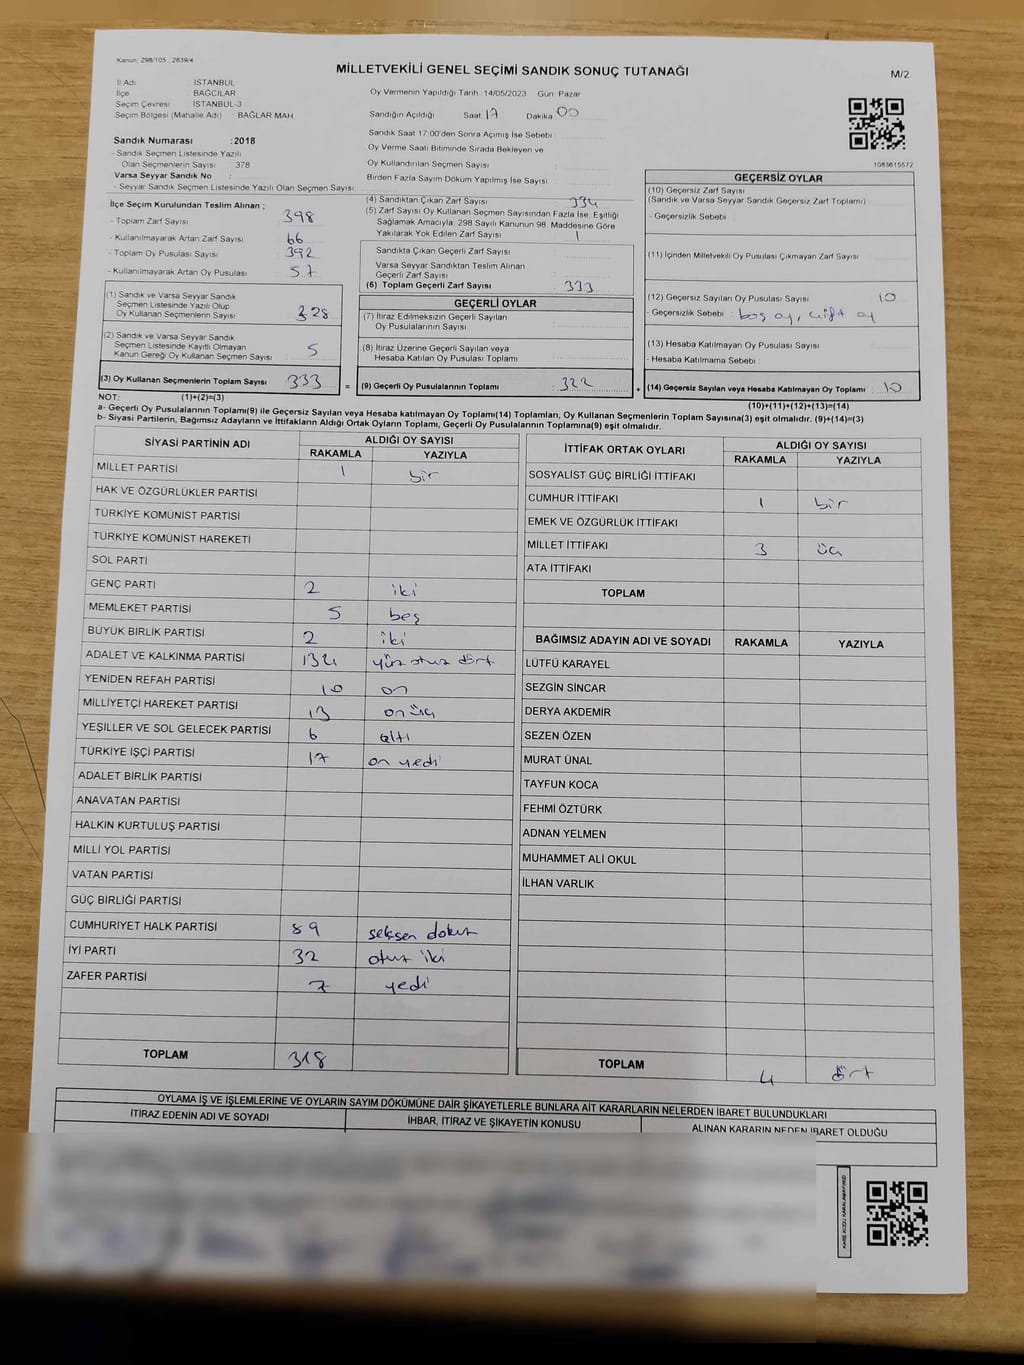 Kanun: 298/105 , 2839/4
MİLLETVEKİLİ GENEL SEÇİMİ SANDIK SONUÇ TUTANAĞI
M/2
İl Adı İSTANBUL
İlçe BAĞCILAR
Seçim Çevresi İSTANBUL-3
Seçim Bölgesi (Mahalle Adı) BAĞLAR MAH
Sandık Numarası :2018
- Sandık Seçmen Listesinde Yazılı
Olan Seçmenlerin Sayısı 378
Varsa Seyyar Sandık No :
- Seyyar Sandık Seçmen Listesinde Yazılı Olan Seçmen Sayısı
Oy Vermenin Yapıldığı Tarih :14/05/2023 Gün: Pazar
Sandığın Açıldığı Saat 17 Dakika 00
Sandık Saat 17:00'den Sonra Açımış İse Sebebi
Oy Verme Saati Bitiminde Sırada Bekleyen ve
Oy Kullandırılan Seçmen Sayısı
Birden Fazla Sayım Döküm Yapılmış İse Sayısı
1083615572
İlçe Seçim Kurulundan Teslim Alınan ;
- Toplam Zarf Sayısı 398
- Kullanılmayarak Artan Zarf Sayısı 66
- Toplam Oy Pusulası Sayısı 392
- Kullanılmayarak Artan Oy Pusulası 57
(1) Sandık ve Varsa Seyyar Sandık
Seçmen Listesinde Yazılı Olup
Oy Kullanan Seçmenlerin Sayısı 328
(2) Sandık ve Varsa Seyyar Sandık
Seçmen Listesinde Kayıtlı Olmayan
Kanun Gereği Oy Kullanan Seçmen Sayısı 5
(3) Oy Kullanan Seçmenlerin Toplam Sayısı 333 =
(4) Sandıktan Çıkan Zarf Sayısı 334
(5) Zarf Sayısı Oy Kullanan Seçmen Sayısından Fazla İse, Eşitliği
Sağlamak Amacıyla, 298 Sayılı Kanunun 98. Maddesine Göre
Yakılarak Yok Edilen Zarf Sayısı 1
Sandıkta Çıkan Geçerli Zarf Sayısı
Varsa Seyyar Sandıktan Teslim Alınan
Geçerli Zarf Sayısı
(6) Toplam Geçerli Zarf Sayısı 333
GEÇERLİ OYLAR
(7) İtiraz Edilmeksizin Geçerli Sayılan
Oy Pusulalarının Sayısı
(8) İtiraz Üzerine Geçerli Sayılan veya
Hesaba Katılan Oy Pusulası Toplamı
(9) Geçerli Oy Pusulalarının Toplamı 322 +
GEÇERSİZ OYLAR
(10) Geçersiz Zarf Sayısı
(Sandık ve Varsa Seyyar Sandık Geçersiz Zarf Toplamı)
- Geçersizlik Sebebi
(11) İçinden Milletvekili Oy Pusulası Çıkmayan Zarf Sayısı
(12) Geçersiz Sayılan Oy Pusulası Sayısı 10
- Geçersizlik Sebebi : boş oy, çift oy
(13) Hesaba Katılmayan Oy Pusulası Sayısı
- Hesaba Katılmama Sebebi
(14) Geçersiz Sayılan veya Hesaba Katılmayan Oy Toplamı 10
NOT: (1)+(2)=(3)
(10)+(11)+(12)+(13)=(14)
a- Geçerli Oy Pusulalarının Toplamı(9) ile Geçersiz Sayılan veya Hesaba katılmayan Oy Toplamı(14) Toplamları, Oy Kullanan Seçmenlerin Toplam Sayısına(3) eşit olmalıdır. (9)+(14)=(3)
b- Siyasi Partilerin, Bağımsız Adayların ve İttifakların Aldığı Ortak Oyların Toplamı, Geçerli Oy Pusulalarının Toplamına(9) eşit olmalıdır.
SİYASİ PARTİNİN ADI ALDIĞI OY SAYISI
RAKAMLA YAZIYLA
MİLLET PARTİSİ 1 bir
HAK VE ÖZGÜRLÜKLER PARTİSİ
TÜRKİYE KOMÜNİST PARTİSİ
TÜRKİYE KOMÜNİST HAREKETİ
SOL PARTİ
GENÇ PARTİ 2 iki
MEMLEKET PARTİSİ 5 beş
BÜYÜK BİRLİK PARTİSİ 2 iki
ADALET VE KALKINMA PARTİSİ 134 yüz otuz dört
YENİDEN REFAH PARTİSİ 10 on
MİLLİYETÇİ HAREKET PARTİSİ 13 on üç
YEŞİLLER VE SOL GELECEK PARTİSİ 6 altı
TÜRKİYE İŞÇİ PARTİSİ 17 on yedi
ADALET BİRLİK PARTİSİ
ANAVATAN PARTİSİ
HALKIN KURTULUŞ PARTİSİ
MİLLİ YOL PARTİSİ
VATAN PARTİSİ
GÜÇ BİRLİĞİ PARTİSİ
CUMHURİYET HALK PARTİSİ 89 seksen dokuz
İYİ PARTİ 32 otuz iki
ZAFER PARTİSİ 7 yedi
TOPLAM 318
İTTİFAK ORTAK OYLARI ALDIĞI OY SAYISI
RAKAMLA YAZIYLA
SOSYALİST GÜÇ BİRLİĞİ İTTİFAKI
CUMHUR İTTİFAKI 1 bir
EMEK VE ÖZGÜRLÜK İTTİFAKI
MİLLET İTTİFAKI 3 üç
ATA İTTİFAKI
TOPLAM
BAĞIMSIZ ADAYIN ADI VE SOYADI RAKAMLA YAZIYLA
LÜTFÜ KARAYEL
SEZGİN SİNCAR
DERYA AKDEMİR
SEZEN ÖZEN
MURAT ÜNAL
TAYFUN KOCA
FEHMİ ÖZTÜRK
ADNAN YELMEN
MUHAMMET ALİ OKUL
İLHAN VARLIK
TOPLAM 4 dört
OYLAMA İŞ VE İŞLEMLERİNE VE OYLARIN SAYIM DÖKÜMÜNE DAİR ŞİKAYETLERLE BUNLARA AİT KARARLARIN NELERDEN İBARET BULUNDUKLARI
İTİRAZ EDENİN ADI VE SOYADI İHBAR, İTİRAZ VE ŞİKAYETİN KONUSU ALINAN KARARIN NEDEN İBARET OLDUĞU
KARE KODU KARALAMAYINIZ!